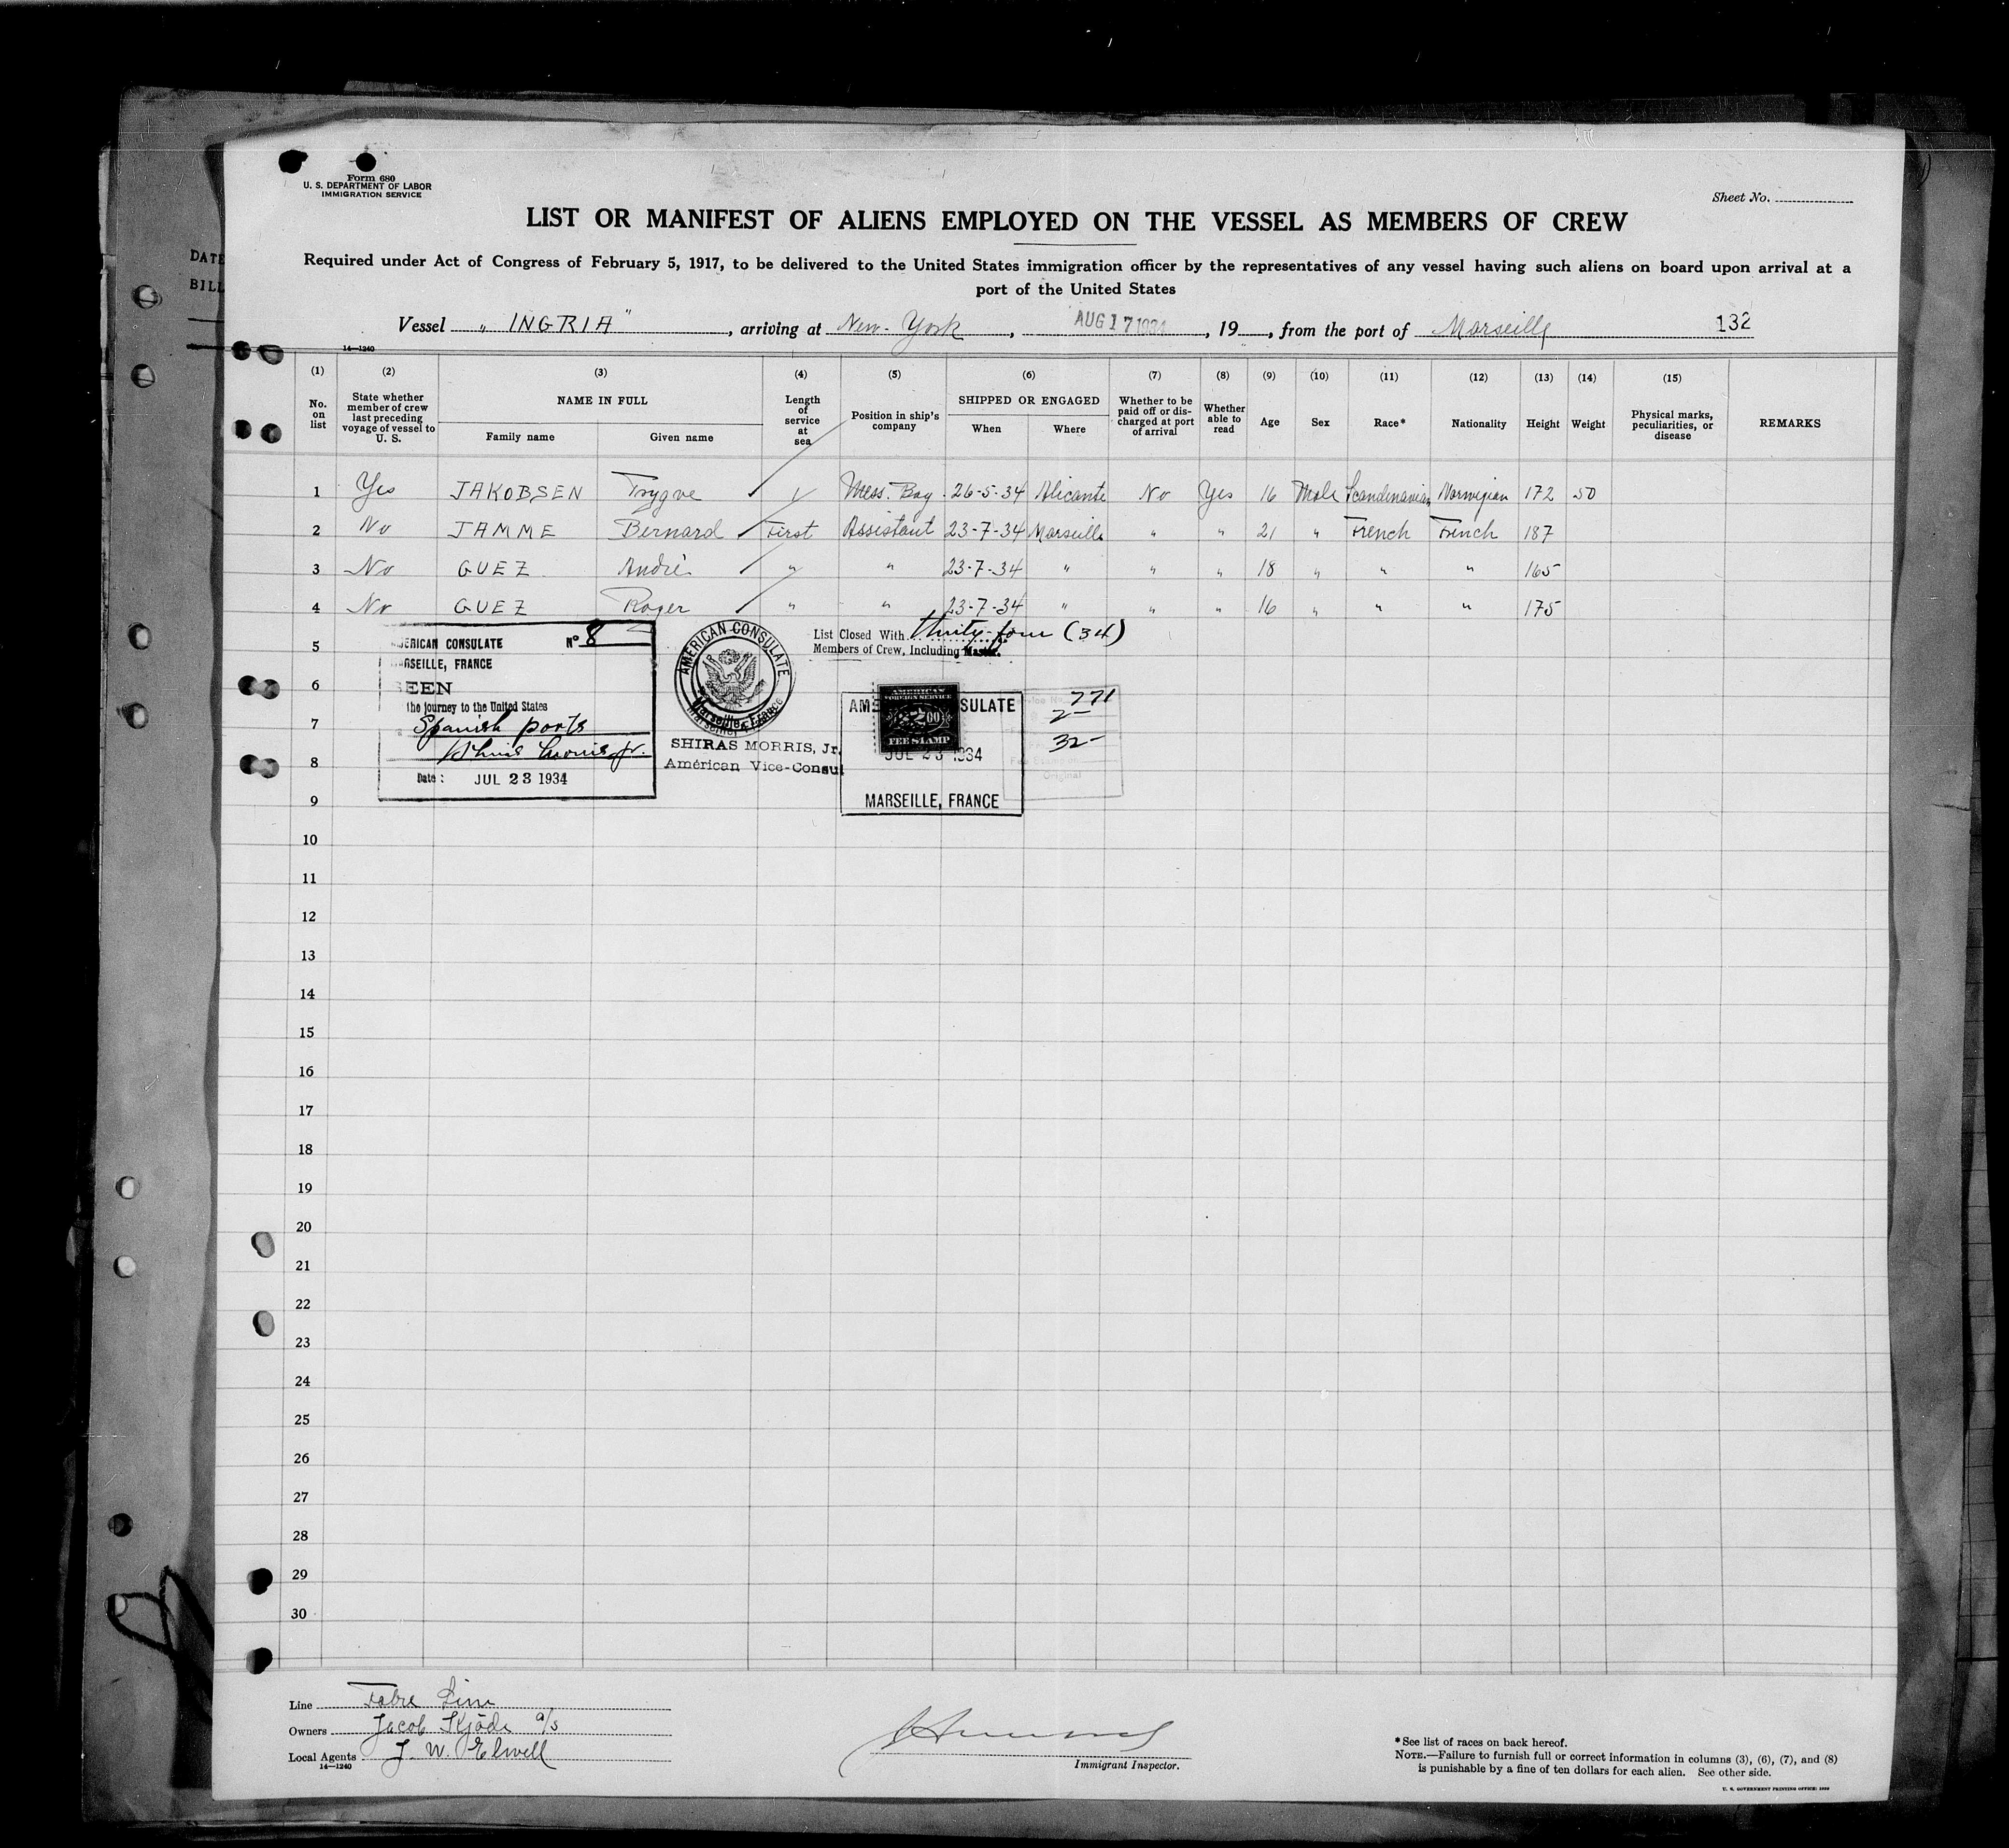 DATE
BILL
Form 680
U. S. DEPARTMENT OF LABOR
IMMIGRATION SERVICE
Sheet No.
LIST OR MANIFEST OF ALIENS EMPLOYED ON THE VESSEL AS MEMBERS OF CREW
Required under Act of Congress of February 5, 1917, to be delivered to the United States immigration officer by the representatives of any vessel having such aliens on board upon arrival at a
port of the United States
Vessel „ INGRIA ", arriving at New-York, AUG 17 1934, 19, from the port of Marseille 132
14—1240
(1) (2) (3) (4) (5) (6) (7) (8) (9) (10) (11) (12) (13) (14) (15)
No. on list State whether member of crew last preceding voyage of vessel to U. S. NAME IN FULL Length of service at sea Position in ship's company SHIPPED OR ENGAGED Whether to be paid off or discharged at port of arrival Whether able to read Age Sex Race* Nationality Height Weight Physical marks, peculiarities, or disease REMARKS
Family name Given name When Where
1 Yes JAKOBSEN Trygve Mess. Boy 26-5-34 Alicante No Yes 16 Male Scandinavian Norwegian 172 50
2 No JAMME Bernard First Assistant 23-7-34 Marseille " " 21 " French French 187
3 No GUEZ André " " 23-7-34 " " " 18 " " " 165
4 No GUEZ Roger " " 23-7-34 " " " 16 " " " 175
5
6
7
8
9
10
11
12
13
14
15
16
17
18
19
20
21
22
23
24
25
26
27
28
29
30
AMERICAN CONSULATE No 8
MARSEILLE, FRANCE
SEEN
the journey to the United States
Spanish ports
Shiras Morris Jr.
Date: JUL 23 1934
AMERICAN CONSULATE
Marseille, France
SHIRAS MORRIS, Jr.
American Vice-Consul
List Closed With thirty-four (34)
Members of Crew, Including Master.
AMERICAN
FOREIGN SERVICE
2 00
FEE STAMP
AME SULATE
JUL 23 1934
MARSEILLE, FRANCE
771
2-
32-
Original
Line Fabre Line
Owners Jacob Kjöde a/s
Local Agents J. W. Elwell
14—1240
Immigrant Inspector.
* See list of races on back hereof.
NOTE.—Failure to furnish full or correct information in columns (3), (6), (7), and (8)
is punishable by a fine of ten dollars for each alien. See other side.